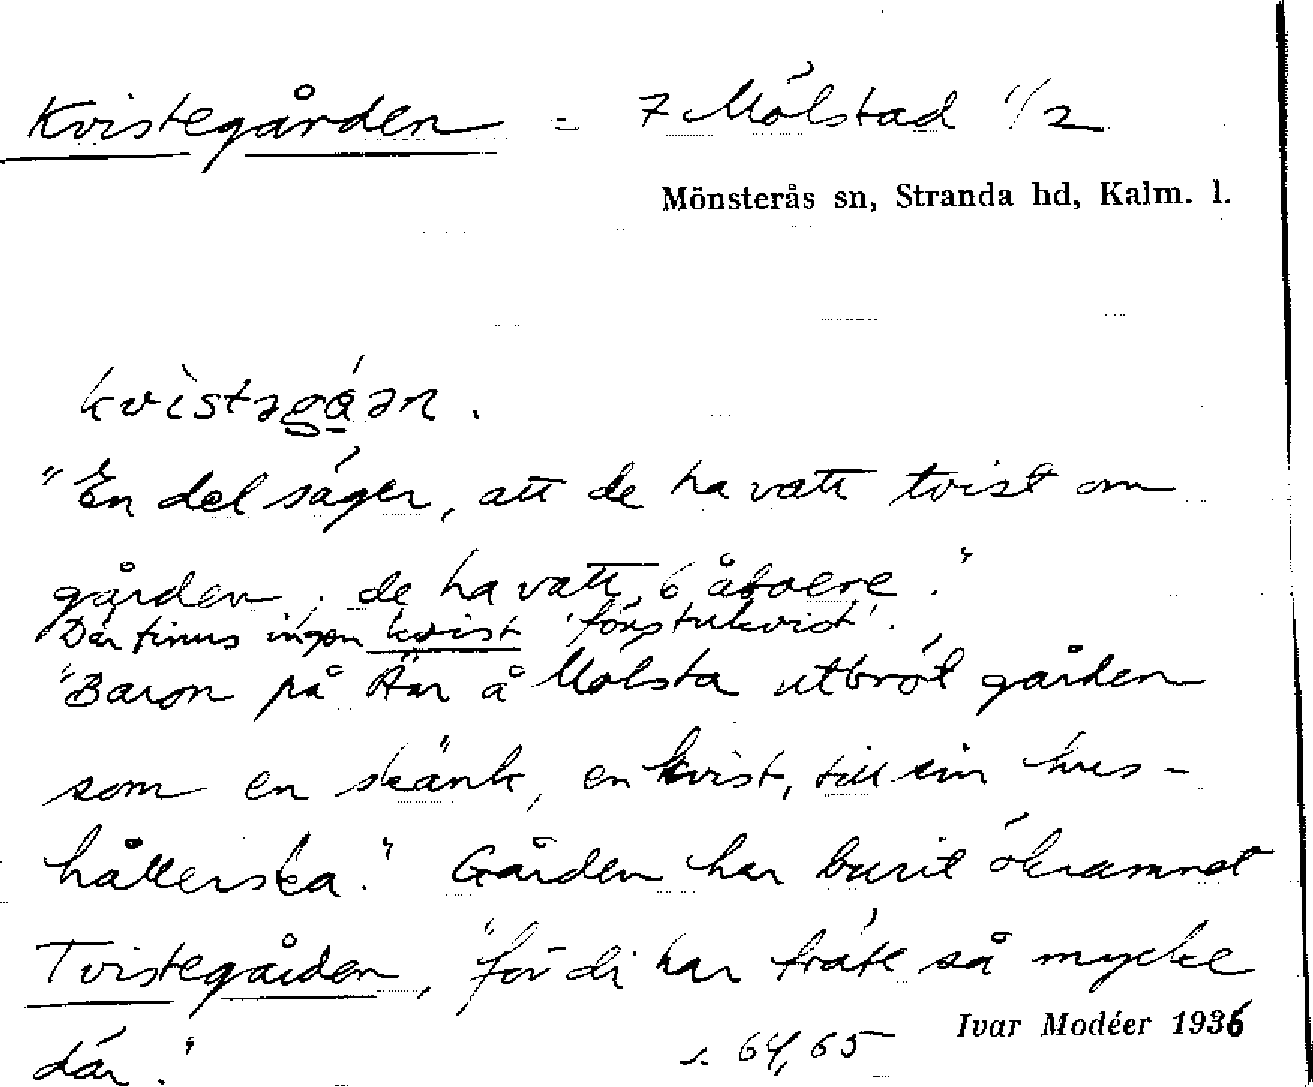 Kvistegården = 7 Mölstad 1/2
Mönsterås sn, Stranda hd, Kalm. l.
kvìstəgɑ́ən.
"En del säger, att de ha vatt tvist om
gården, de ha vatt 6 åboere."
Där finns ingen kvist 'förstukvist'.
"Baron på Äm å Mölsta utbröt gården
som en skänk, en kvist, till sin hus-
hållerska." Gården har burit öknamnet
Tvistegården, "för di har träte så mycke
där."
s. 64, 65
Ivar Modéer 1936